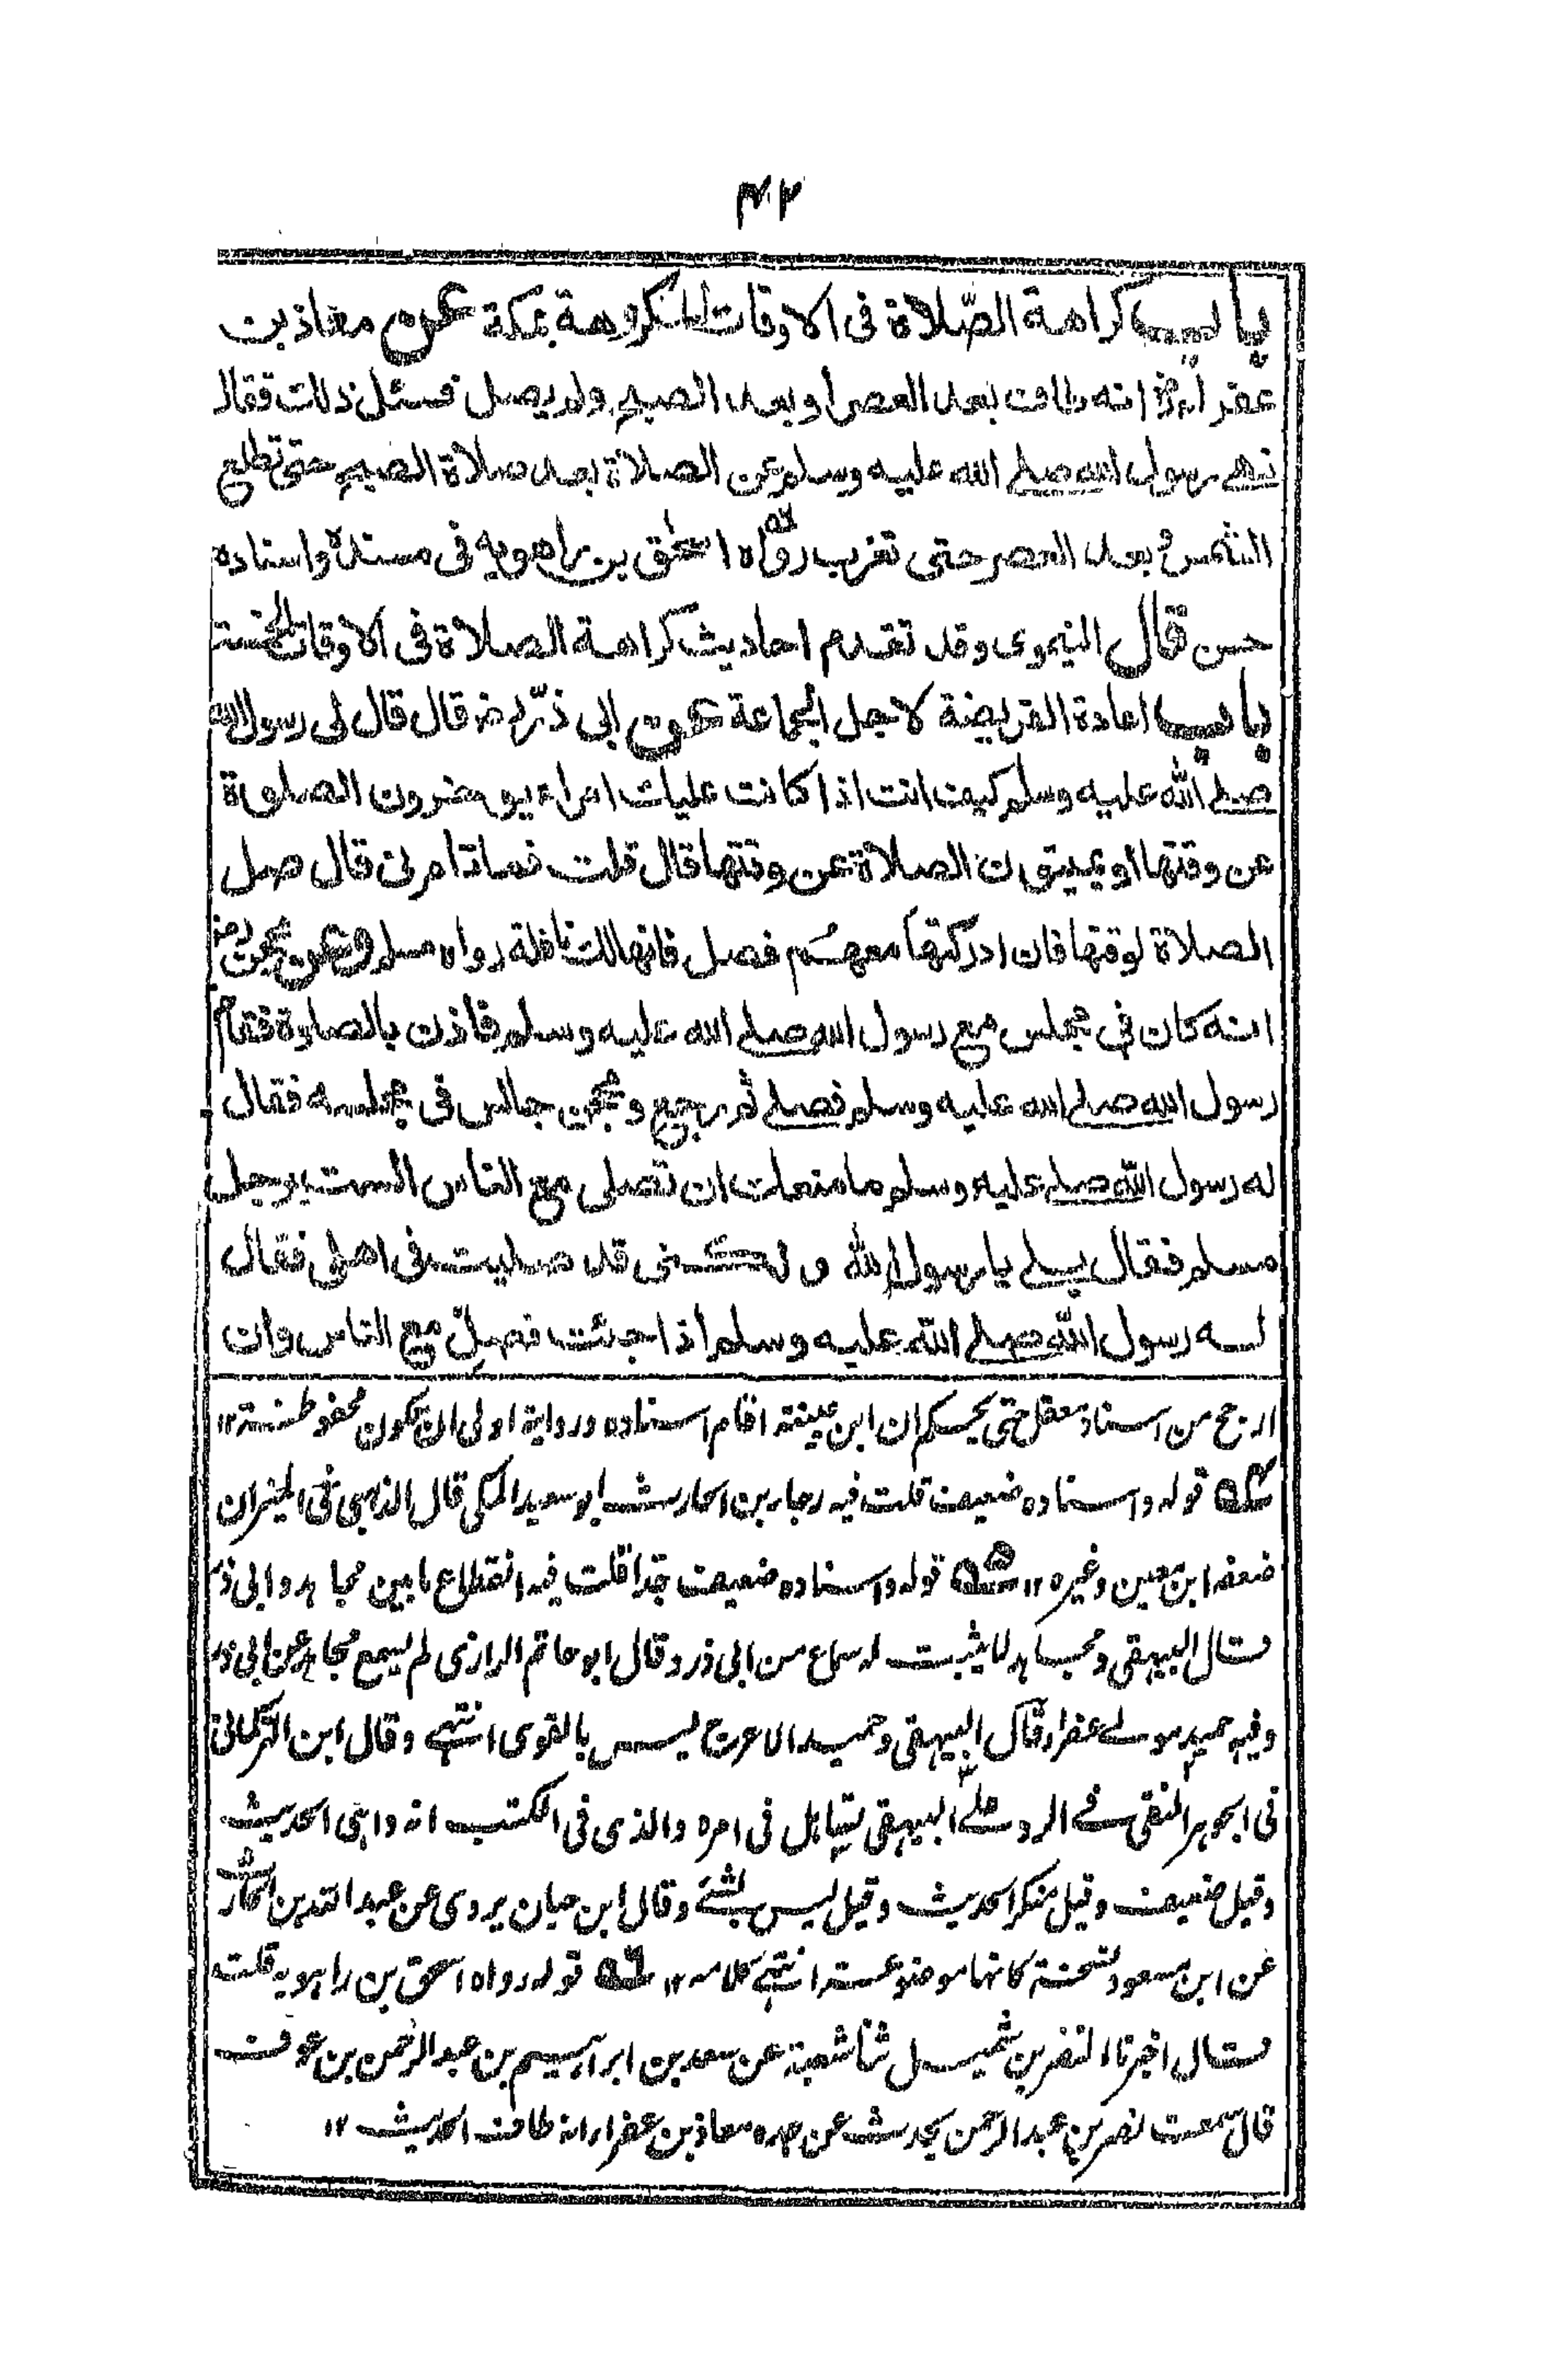 باب كراهة الصّلاة فى الاوقات المكروهة بمكة عن معاذ بن
عفراءرض انه طاف بعد العصر او بعد الصبح ولم يصل فسئل ذلك فقال
نهى رسول الله صلى الله عليه وسلم عن الصلاة بعد صلاة الصبح حتى تطلع
الشمس وبعد العصر حتى تغرب رواه اسحٰق بن راهويه فى مسنده واسناده
حسن قال النيموى وقد تقدم احاديث كراهة الصلاة فى الاوقات الخمسة
باب اعادة الفريضة لاجل الجماعة عن ابى ذرّ رض قال قال لى رسول الله
صلى الله عليه وسلم كيف انت اذا كانت عليك امراء يوخرون الصلوة
عن وقتها او يميتون الصلاة عن وقتها قال قلت فما تامرنى قال صل
الصلاة لوقتها فان ادركتها معهم فصل فانها لك نافلة رواه مسلم وعن محجن رض
انه كان فى مجلس مع رسول الله صلى الله عليه وسلم فاذن بالصلوة فقام
رسول الله صلى الله عليه وسلم فصلى ثم رجع ومحجن جالس فى مجلسه فقال
له رسول الله صلى عليه وسلم ما منعك ان تصلى مع الناس الست برجل
مسلم فقال بلى يا رسول الله ولكنى قد صليت فى اهلى فقال
له رسول الله صلى الله عليه وسلم اذا جئت فصلّ مع الناس وان
ارجح من اسناد معقل حتى يحكم ان ابن عيينة اقام اسناده ورواية اولى ان تكون محفوظة ١٢
قوله واسناده ضعيف قلت فيه رجاء بن الحارث ابو سعيد المكى قال الذهبى فى الميزان
ضعفه ابن معين وغيره ١٢ قوله واسناده ضعيف جدا قلت فيه انقطاع ما بين مجاهد وابى ذر
قال البيهقى ومجاهد لا يثبت له سماع من ابى ذر وقال ابو حاتم الرازى لم يسمع مجاهد عن ابى ذر
وفيه حميد مولى عفراء قال البيهقى وحميد الاعرج ليس بالقوى انتهى وقال ابن التركمانى
فى الجوهر النقى فى الرد على البيهقى تساهل فى امره والذى فى الكتب انه واهى الحديث
وقيل ضعيف وقيل منكر الحديث وقيل ليس بشئ وقال ابن حبان يروى عن عبد الله بن الحارث
عن ابن مسعود نسخة كانها موضوعة انتهى كلامه ١٢ قوله رواه اسحق بن راهويه قلت
قال اخبرنا النضر بن شميل ثنا شعبة عن سعد بن ابراهيم بن عبد الرحمن بن عوف
قال سمعت نصر بن عبد الرحمن يحدث عن جده معاذ بن عفراء انه طاف الحديث ١٢